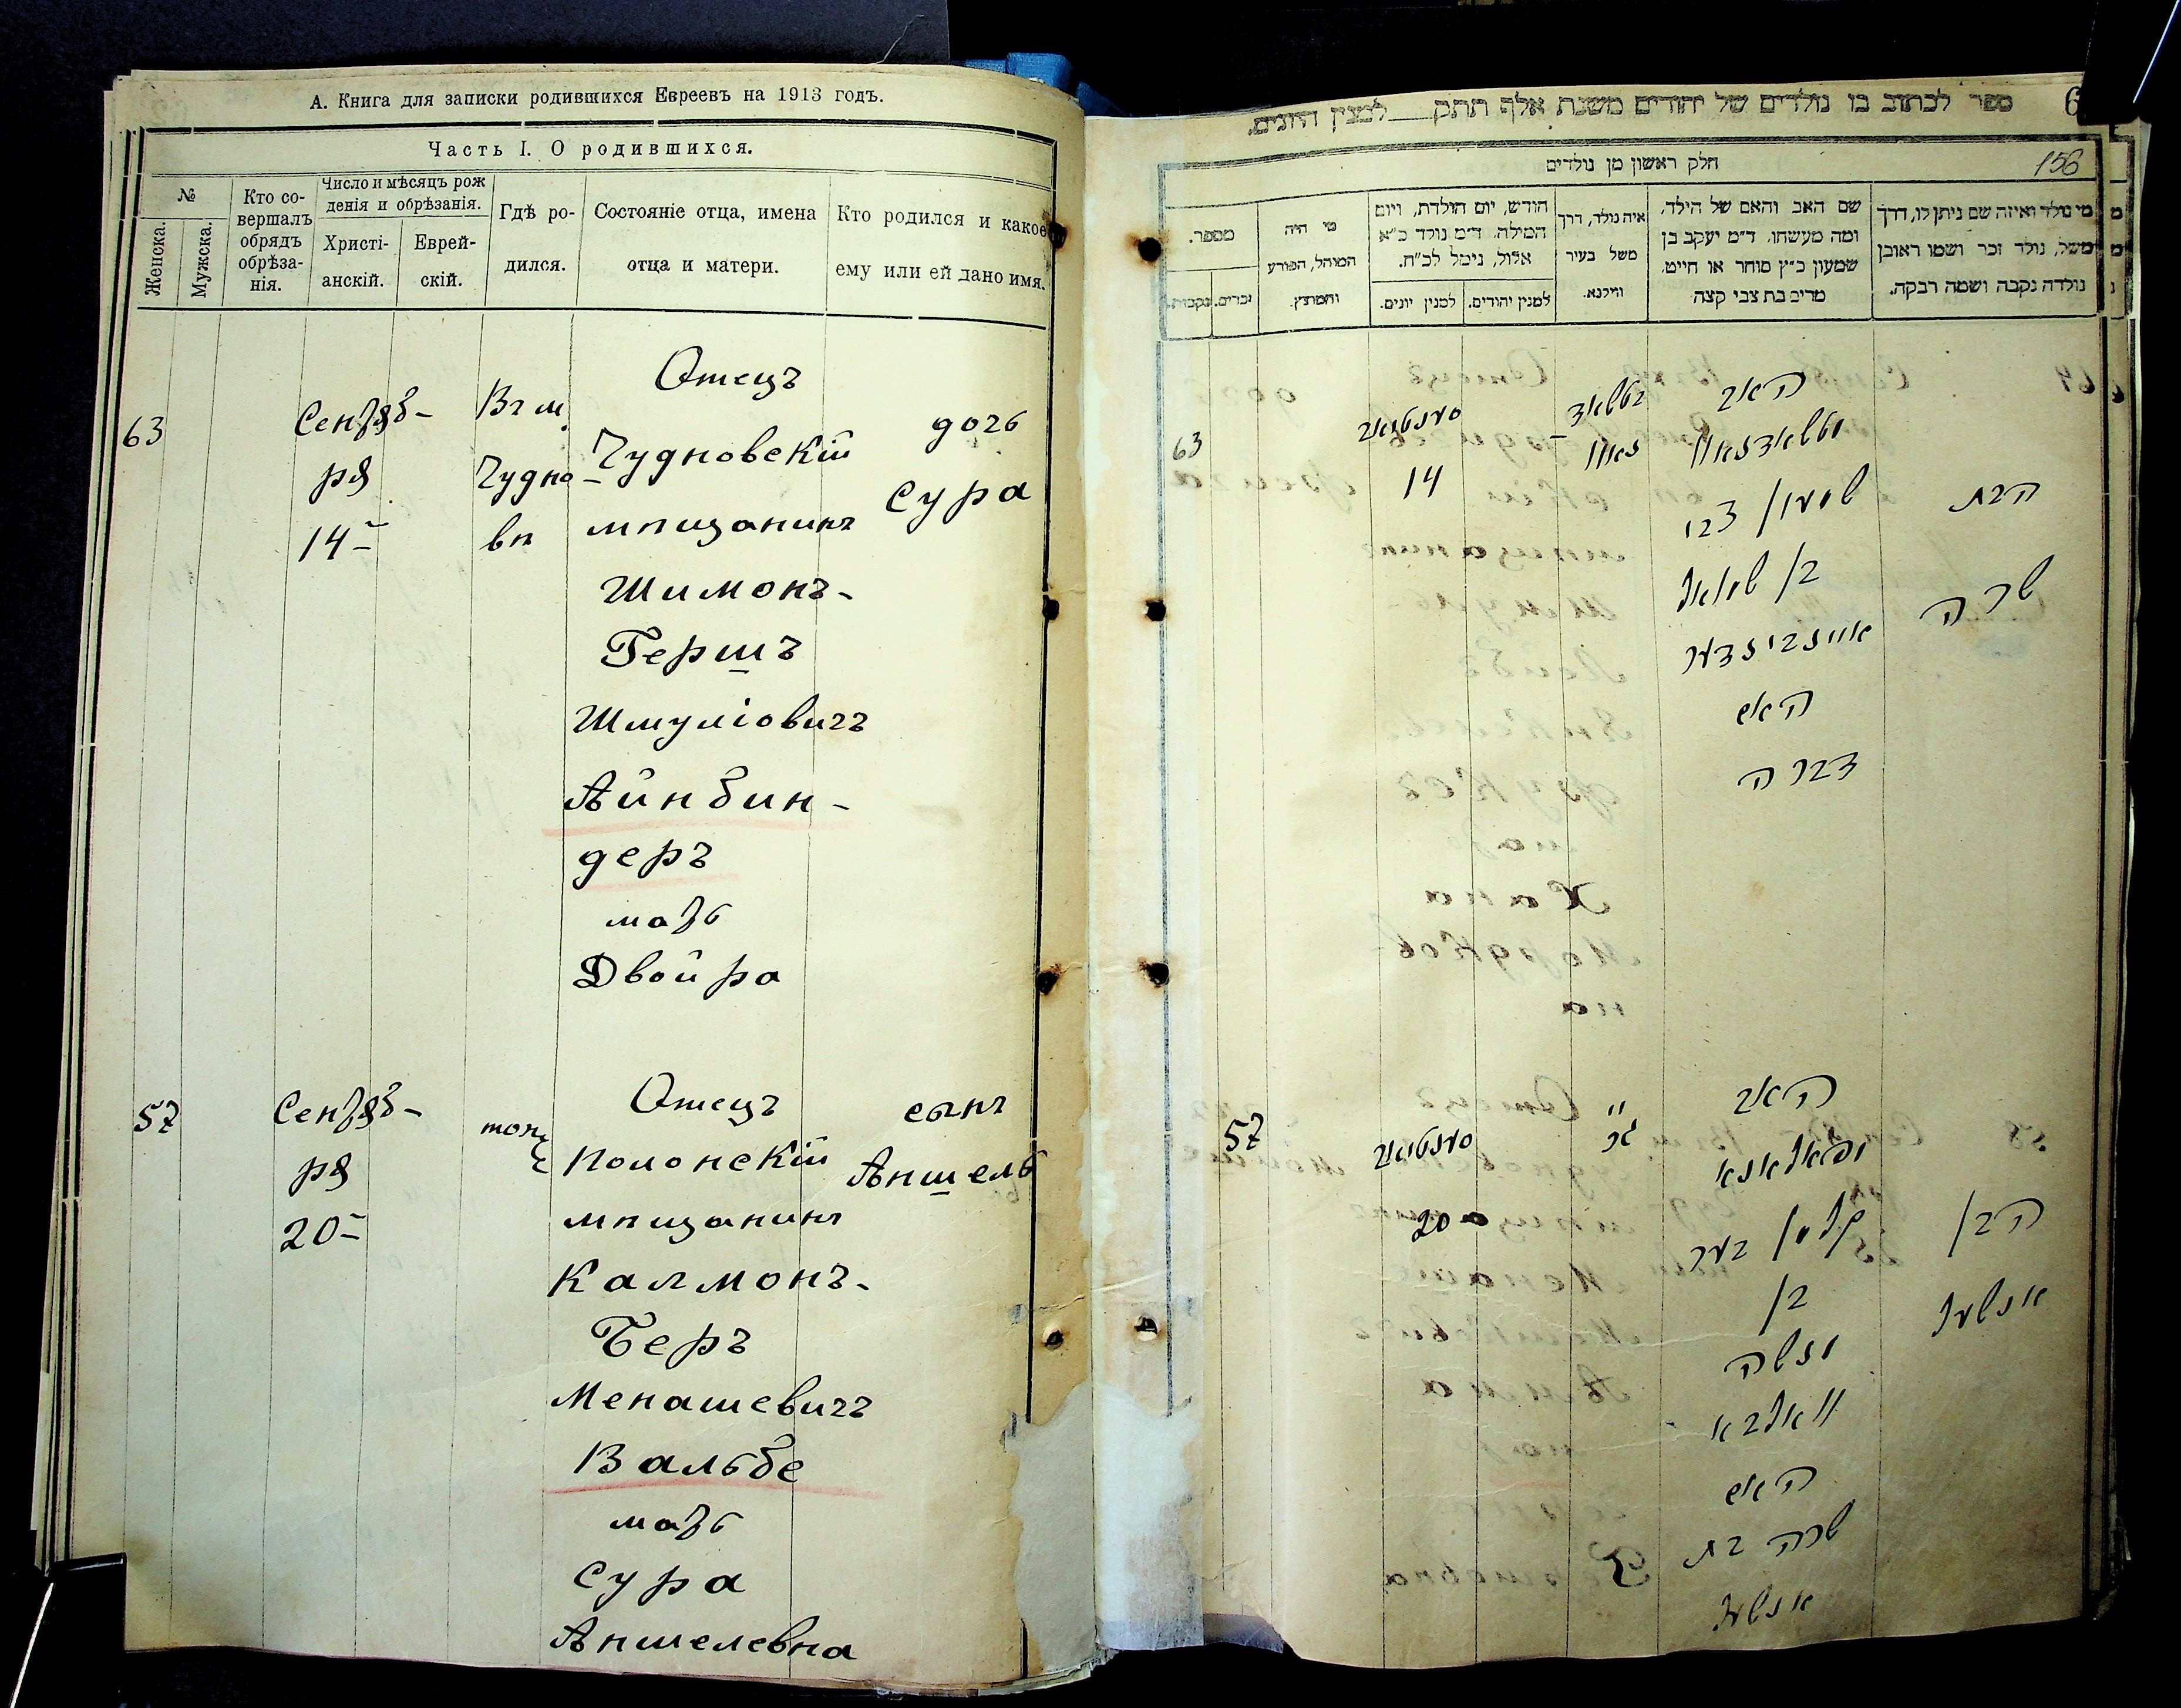 А. Книга для записки родившихся Евреевъ на 1913 годъ.
Часть I. О родившихся.
№
Женска.
Мужска.
Кто со-
вершалъ
обрядъ
обрѣза-
нія.
Число и мѣсяцъ рож
денія и обрѣзанія.
Христі-
анскій.
Еврей-
скій.
Гдѣ ро-
дился.
Состояніе отца, имена
отца и матери.
Кто родился и какое
ему или ей дано имя.
63
Сентяб-
ря
14-
Въ м.
Чудно
вѣ
Отецъ
Чудновскій
мѣщанинъ
Шимонъ-
Гершъ
Шмуліовичъ
Айнбин-
деръ
мать
Двойра
дочь
Сура
57
Сентяб-
ря
20-
тоже
Отецъ
Полонскій
мѣщанинъ
Калмонъ-
Беръ
Менашевичъ
Вальбе
мать
Сура
Аншелевна
сынъ
Аншель
ספר לכתוב בו נולדים של יהודים משנת אלף תתק לנוצרים יונים.
6
חלק ראשון מן נולדים
156
מי נולד ואיזה שם ניתן לו, דרך
משל, נולד זכר ושמו ראובן
נולדה נקבה ושמה רבקה.
שם האב והאם של הילד,
ומה מעשהו, ד״מ יעקב בן
שמעון כ״ץ סוחר או חייט,
מרים בת צבי קצה
איה נולד, דרך
משל בעיר
ווילנא.
חודש, יום הולדת, ויום
המילה, ד״מ נולד כ״א
אלול, נימול לכ״ח.
למנין יהודים.
למנין יונים.
מי היה
המוהל, הפורע
והמוצץ.
מספר.
זכרים.
נקבות.
63
סענטיאב
14
האב
שמעון צבי
בן שמואל
איינבינדער
האם
דברה
הבת
שרה
57
סענטיאב
20
האב
קלמן בער
בן
מנשה
וואלבא
האם
שרה בת
אנשעל
הבן
אנשעל